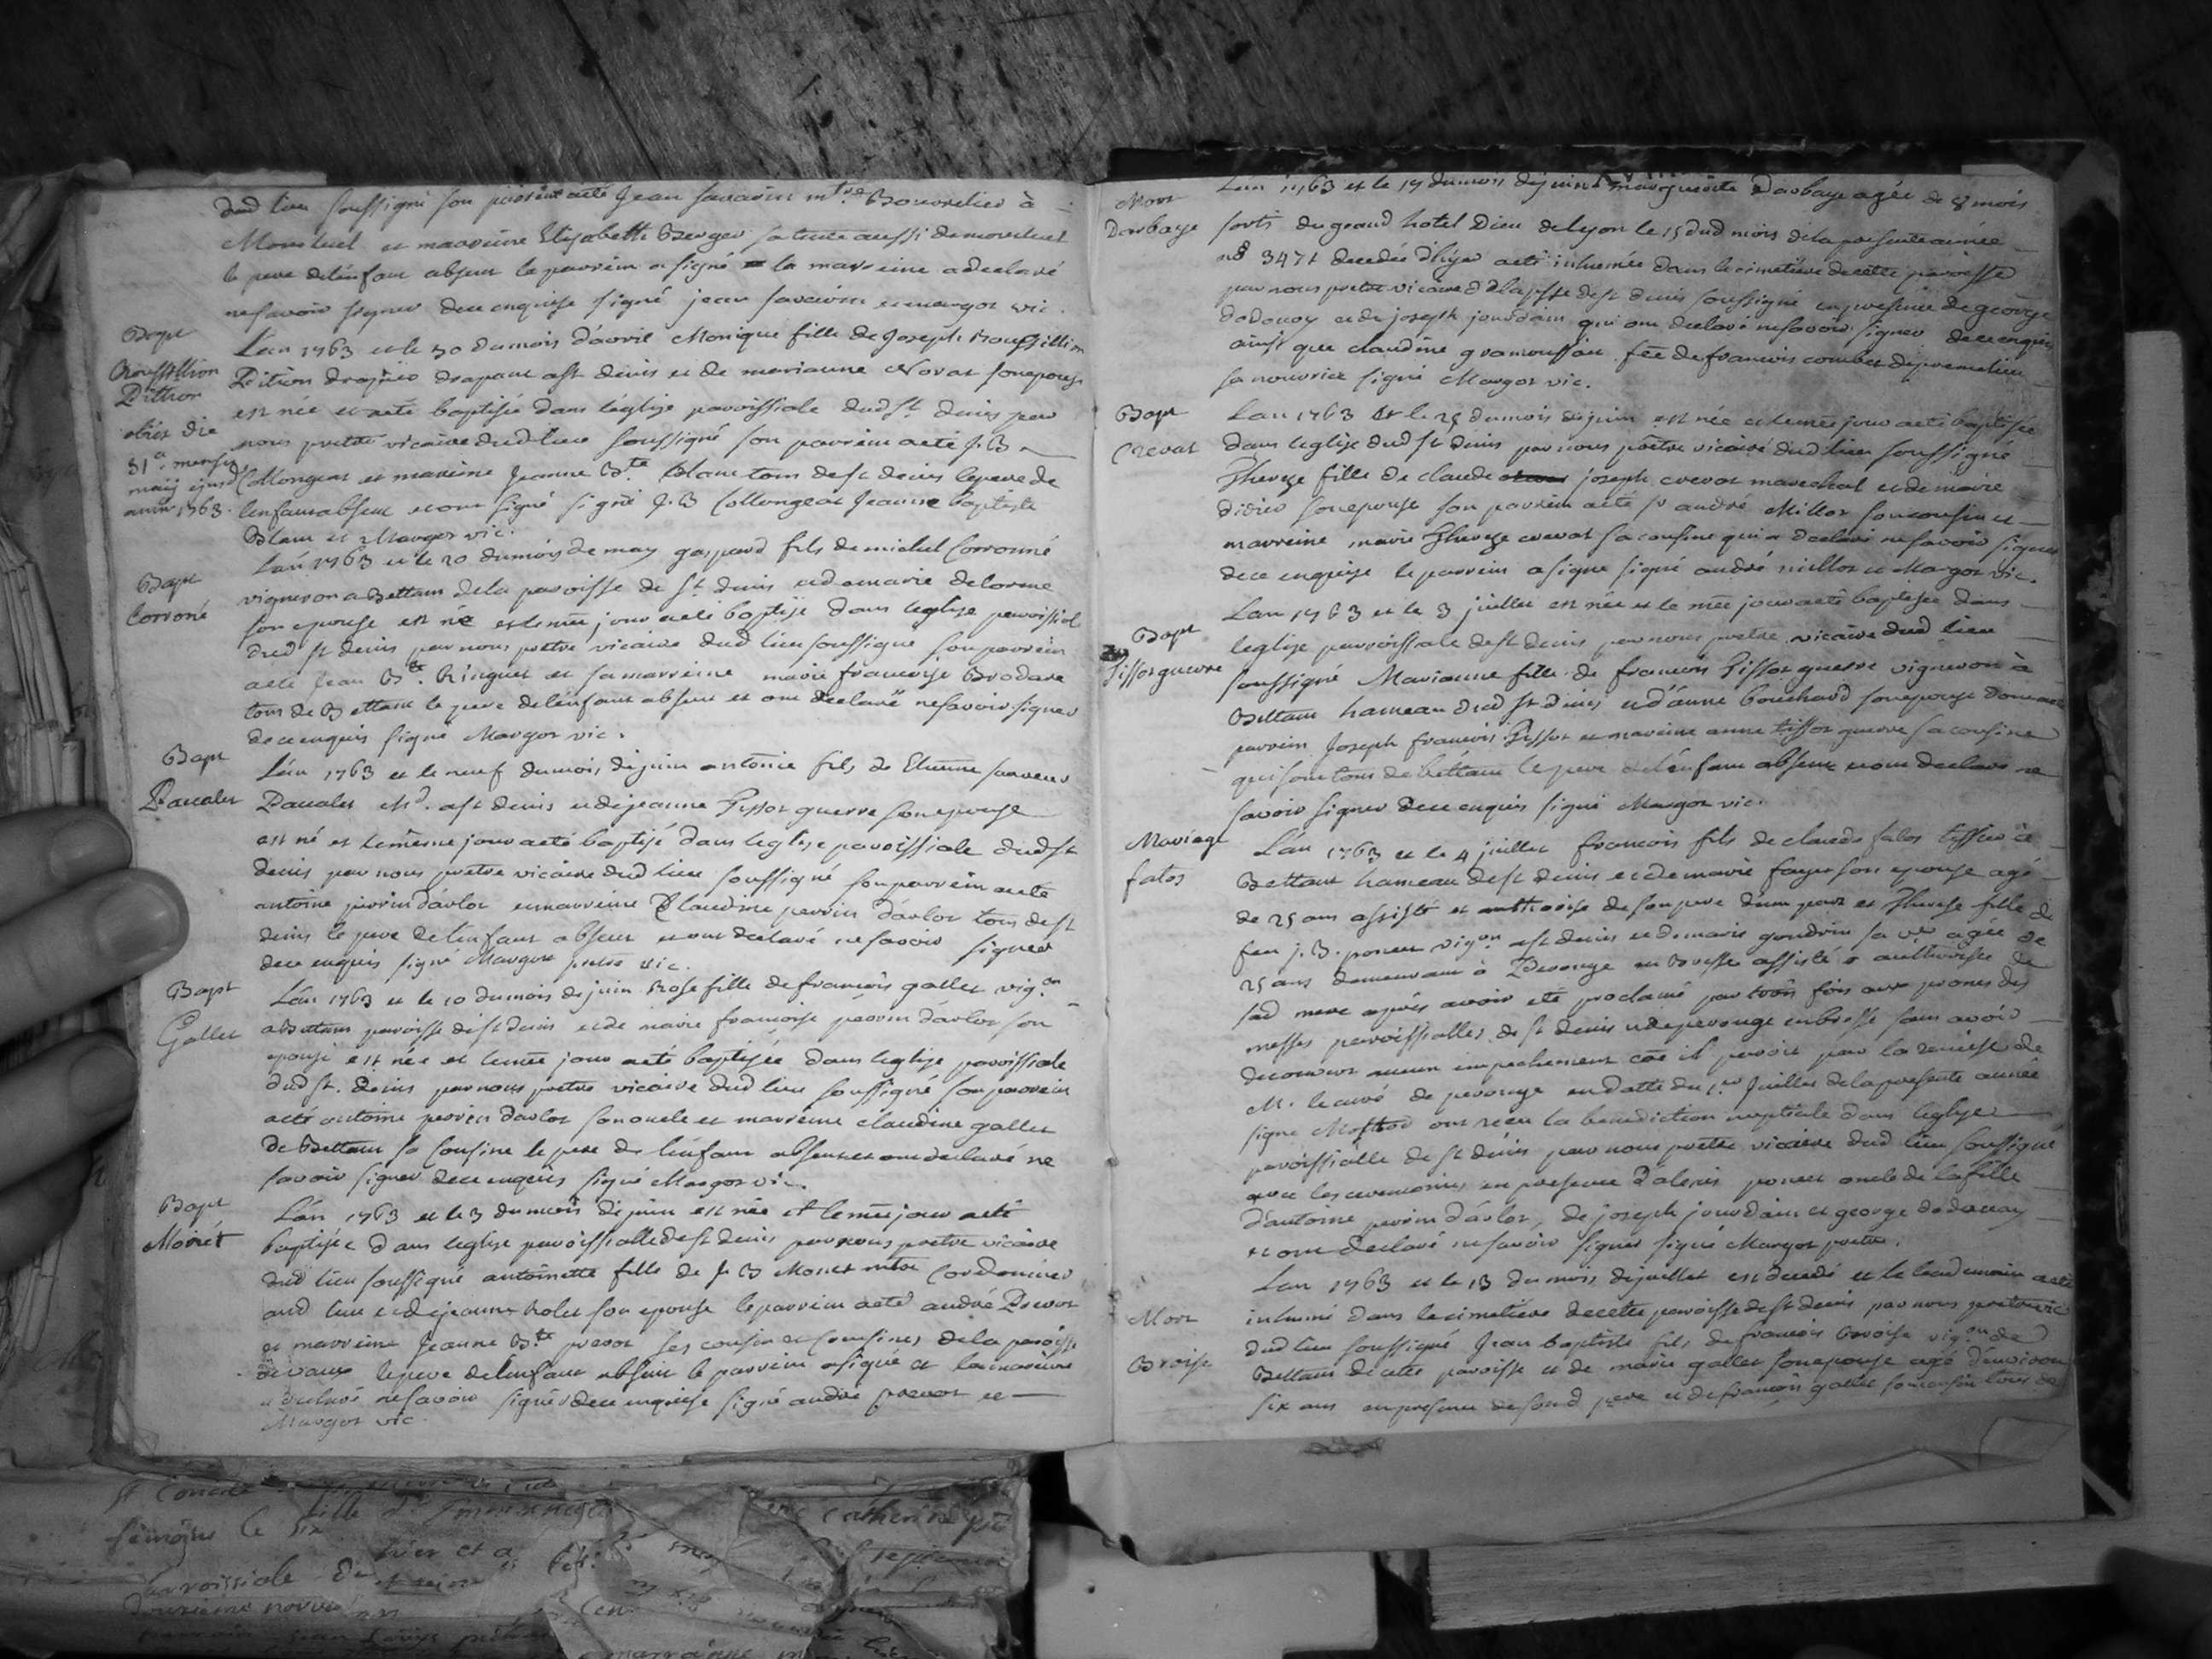 dud lieu soussigné son parrain a été Jean savarin m.tre Bourrelier à
Montluel et marreine Elizabeth Berger sa tante aussi de montluel
le pere de lenfant absent le parrein a signé la marreine a declaré
ne savoir signer de ce enquise signé jean savarin et margot vic.
Bapt
Roussillion
Dittion
obiit die
31a. mensis
maij ejusd
anni 1763.
L'an 1763 et le 30 du mois d'avril Monique fille de Joseph Roussillion
Dition drapier drapant a st denis et de marianne Novat son epouse
est née et a eté baptisée dans l'église paroissiale dud st. denis par
nous pretre vicaire dud lieu soussigné son parrein a eté J. B
Collongeat et mareine Jeanne B.te Blanc tous de st denis le pere de
lenfant absent et ont signé signé J. B Collongeat Jeanne baptiste
Blanc et Margot vic.
Bapt
Corroné
L'an 1763 et le 20 du mois de may gaspard fils de michel Corronné
vigneron a Bettans de la paroisse de st. denis et de marie delorme
son epouse est né et le mee jour a eté baptisé dans leglise paroissial
dud st denis par nous pretre vicaire dud lieu soussigné son parrein
a eté Jean B.te Ringuet et sa marreine marie francoise Brodare
tous de Bettans le pere de lenfant absent et ont declaré ne savoir signer
de ce enquis signé Margot vic.
Bapt
Pauales
L'an 1763 et le neuf du mois de juin antoine fils de Etienne
Pauales Md. a st denis et de jeanne Tissot guerre son epouse
est né et le même jour a eté baptisé dans leglise paroissiale dud st
denis par nous pretre vicaire dud lieu soussigné son parrein a eté
antoine perrin d'arlot et marreine Claudine perrin d'arlot tous de st
denis le pere de lenfant absent et ont declaré ne savoir signer
de ce enquis signé Margot pretre vic.
Bapt
Gallet
L'an 1763 et le 10 du mois de juin Rose fille de francois gallet vig.on
a bettans paroisse de st denis et de marie francoise perrin d'arlot son
epouse est née et le mee jour a eté baptisée dans leglise paroissiale
dud st. denis par nous pretre vicaire dud lieu soussigné son parrein
a eté antoine perrin darlot son oncle et marreine claudine gallet
de Bettans sa cousine le pere de lenfant absent et ont declaré ne
savoir signer de ce enquis signé Margot vic.
Bapt
Moiret
L'an 1763 et le 3 du mois de juin est née et le mee jour a eté
baptisée dans leglise paroissialle de st denis par nous pretre vicaire
dud lieu soussigné antoinette fille de J. B Monet mtre Cordonnier
aud lieu et de jeanne Rolet son epouse le parrein a eté andré Prevot
et marreine Jeanne B.te prevot ses cousin et cousines de la paroisse
de vaux le pere de lenfant absent le parrein a signé et la mareine
a declaré ne savoir signer de ce enquise signé andré prevot et
Margot vic.
Mort
Darbaye
L'an 1763 et le 17 du mois de juin marguerite Darbaye agée de 8 mois
sorti du grand hotel Dieu de lyon le 15 dud mois de la presente année
n° 3471 decedée d'hyer a eté inhumée dans le cimetière de cette paroisse
par nous pretre vicaire de st denis soussigné en presence de george
dodouay et de joseph jourdain qui ont declaré ne savoir signer de ce enquis
ainsi que claudine gramoussau fée de francois combet
sa nourrice signé Margot vic.
Bapt
Crevat
L'an 1763 et le 25 du mois de juin est née et le mee jour a eté baptisée
dans leglise dud st denis par nous prêtre vicaire dud lieu soussigné
Therese fille de claude joseph crevat marechal et de marie
didier son epouse son parrein a eté sr andré Millot son cousin et
marreine marie Therese crevat sa cousine qui a declaré ne savoir signer
de ce enquise le parrein a signe signé andré millot et Margot vic.
Bapt
Tissot guerre
L'an 1763 et le 3 juillet est née et le mee jour a eté baptisée dans
leglise parroissiale de st denis par nous pretre vicaire dud lieu
soussigné Marianne fille de francois Tissot guerre vigneron à
Bettans hameau dud st denis et d'anne bouchard son epouse dont a eté
parrein Joseph francois Tissot et mareine anne tissot guerre sa cousine
qui sont tous de bettans le pere de lenfant absent et ont declaré ne
savoir signer de ce enquis signé Margot vic.
Mariage
falos
L'an 1763 et le 4 juillet francois fils de claude falos tissier à
Bettant hameau de st denis et de marie fayer son epouse agé
de 25 ans assisté et authorisé de son pere d'une part et Therese fille de
feu j. B. poncet vig.on a st denis et de marie goudrin sa ve agée de
25 ans demeurant à Perouge en bresse assisté et authorisée de
sad mere après avoir eté proclamé par trois fois aux prones des
messes paroissialles de st denis et de perouge en bresse sans avoir
decouvert aucun impechement coe il paroit par la remise de
M. le curé de perouge en datte du 1er Juillet de la presente année
signe ont recu la benediction nuptiale dans leglise
paroissialle de st denis par nous pretre vicaire dud lieu soussigné
avec les ceremonies en presence d'alexis poncet oncle de la fille
d'antoine perrin d'arlot, de joseph jourdain et george dodouay
et ont declaré ne savoir signer signé Margot pretre.
Mort
Broise
L'an 1763 et le 13 du mois de juillet est decedé et le lendemain a eté
inhumé dans le cimetière de cette paroisse de st denis par nous pretre vic
dud lieu soussigné Jean baptiste fils de francois broise vig.on de
Bettans de cette paroisse et de marie gallet son epouse agé d'environ
six ans en presence de sond pere et de francois gallet son cousin tous de